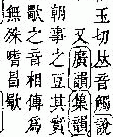 玉切丛音觸說
又廣韻集韻
朝事之豆其實
歜之音相傳爲
無殊嗜昌歜